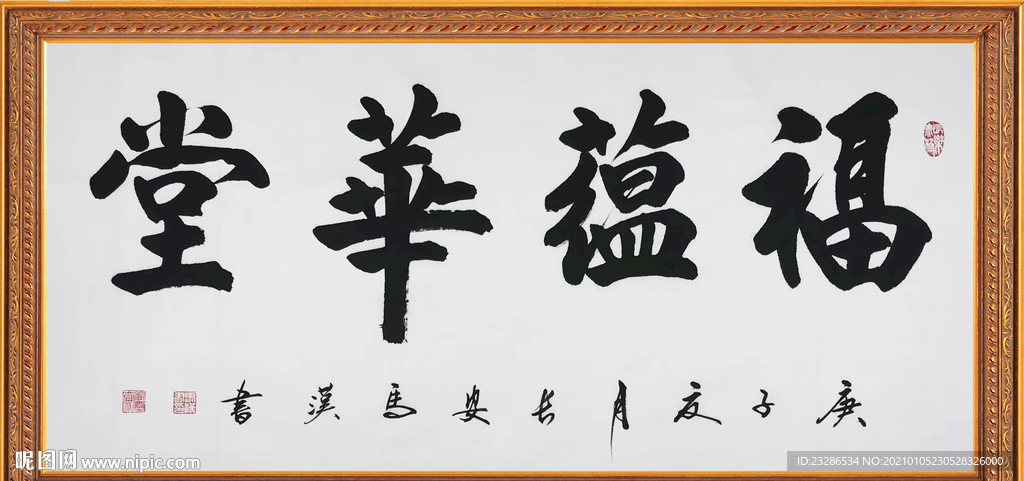 福蕴華堂
庚子夏月長安馬漢書
昵图网 www.nipic.com
ID:23286534 NO:20210105230528326000